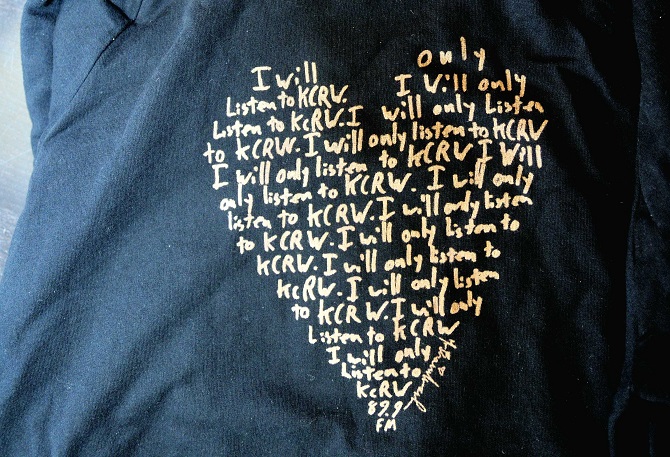 I will only
Listen to KCRW. I will only
Listen to KCRW. I will only Listen
to KCRW. I will only listen to KCRW
I will only listen to KCRW I will
only listen to KCRW. I will only
listen to KCRW. I will only listen
to KCRW. I will only listen to
KCRW. I will only listen to
KCRW. I will only listen
to KCRW. I will only
Listen to KCRW
I will only
Listen to
KCRW
89.9
FM